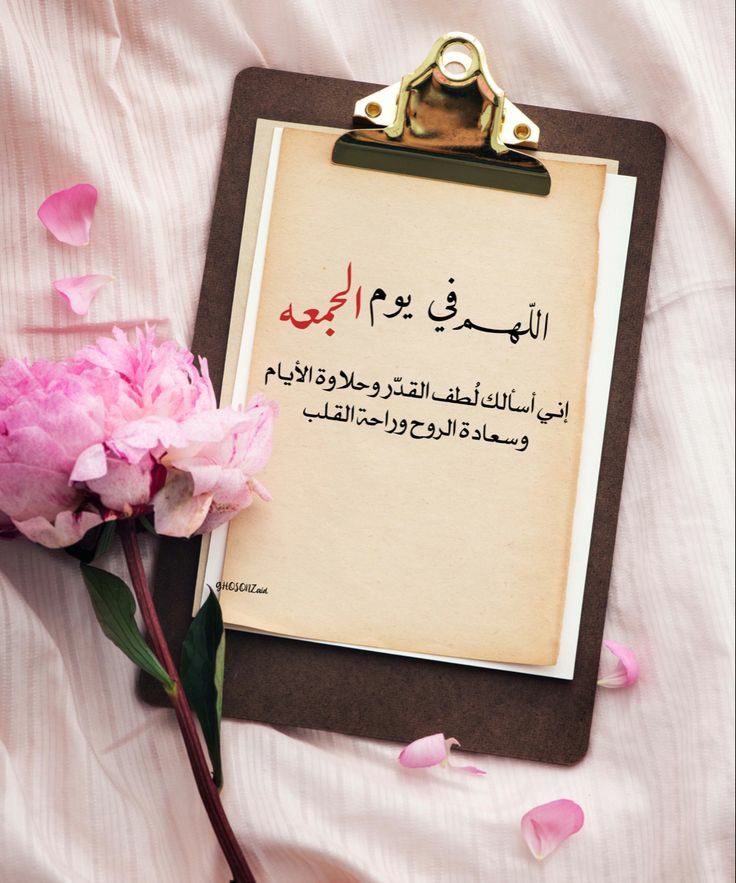 اللّهم في يوم الجمعه
إني أسألك لُطف القدّر وحلاوة الأيام
وسعادة الروح وراحة القلب
GHOSONZaid